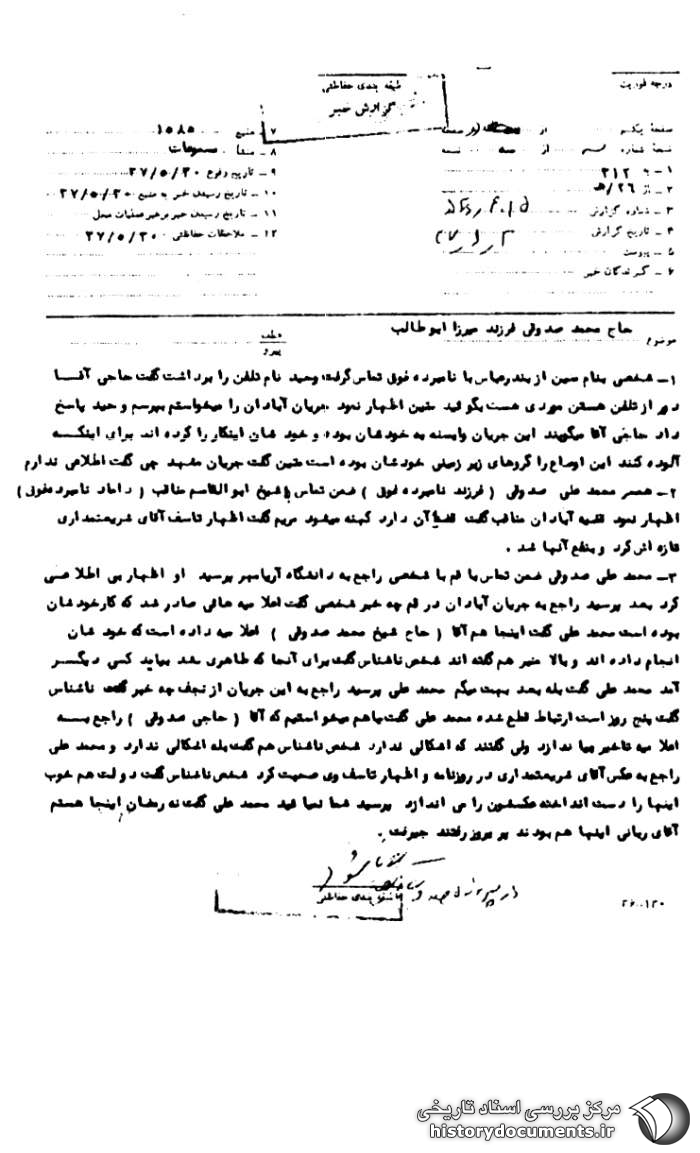 درجه فوریت
طبقه بندی حفاظتی
گزارش خبر
صفحه یکم از
نسخه شماره از نسخه
۱ – به ۳۱۲
۲ – از ۲۶/هـ
۳ – شماره گزارش
۴ – تاریخ گزارش
۵ – پیوست
۶ – گیرندگان خبر
۷ – منبع ۱۵۸۵
۸ – منشا مسموعات
۹ – تاریخ وقوع ۳۷/۵/۳۰
۱۰ – تاریخ رسیدن خبر به منبع ۳۷/۵/۳۰
۱۱ – تاریخ رسیدن خبر برهبر عملیات محل
۱۲ – ملاحظات حفاظتی ۳۷/۵/۳۰
موضوع حاج محمد صدوقی فرزند میرزا ابوطالب
عطف
پیرو
۱– شخصی بنام متین از بندرعباس با نامبرده فوق تماس گرفت وحید نام تلفن را برداشت گفت حاجی آقا
دور از تلفن هستن موردی هست بگوئید متین اظهار نمود جریان آبادان را میخواستم بپرسم وحید پاسخ
داد حاجی آقا میگویند این جریان وابسته به خودشان بوده و خودشان اینکار را کرده اند برای اینکه
آلوده کنند این اوضاع را گروهای زیر زمینی خودشان بوده است متین گفت جریان مشهد چی گفت اطلاعی ندارم
۲– همسر محمد علی صدوقی ( فرزند نامبرده فوق ) ضمن تماس با شیخ ابوالقاسم مناقب ( داماد نامبرده فوق )
اظهار نمود قضیه آبادان مناقب گفت آن دارد کهنه میشود مریم گفت اظهار تاسف آقای شریعتمداری
تازه اش کرد و بنفع آنها شد .
۳– محمد علی صدوقی ضمن تماس با قم با شخصی راجع به دانشگاه آریامهر پرسید او اظهار بی اطلاعی
کرد بعد پرسید راجع به جریان آبادان در قم چه خبر شخصی گفت اعلامیه هائی صادر شد که کار خودشان
بوده است محمد علی گفت اینجا هم آقا ( حاج شیخ محمد صدوقی ) اعلامیه داده است که خودشان
انجام داده اند و بالا منبر هم گفته اند شخص ناشناس گفت برای آنجا که طاهری نشد بیاید کسی دیگر
آمد محمد علی گفت بله بعد بهت میگم محمد علی پرسید راجع به این جریان از نجف چه خبر گفت ناشناس
گفت پنج روز است ارتباط قطع شده محمد علی گفت ما هم میخواستیم که آقا ( حاجی صدوقی ) راجع بسه
اعلامیه تاخیر بیاندازد ولی گفتند که اشکالی ندارد شخص ناشناس هم گفت بله اشکالی ندارد و محمد علی
راجع به عکس آقای شریعتمداری در روزنامه و اظهار تاسف وی صحبت کرد شخص ناشناس گفت دولت هم خوب
اینها را دست انداخته عکسشون را می اندازد پرسید شما نمیائید محمد علی گفت نه رمضان اینجا هستم
آقای ربانی اینها هم بودند پریروز رفتند جیرفت .
طبقه بندی حفاظتی
۲۶-۱۲۰
مرکز بررسی اسناد تاریخی
historydocuments.ir